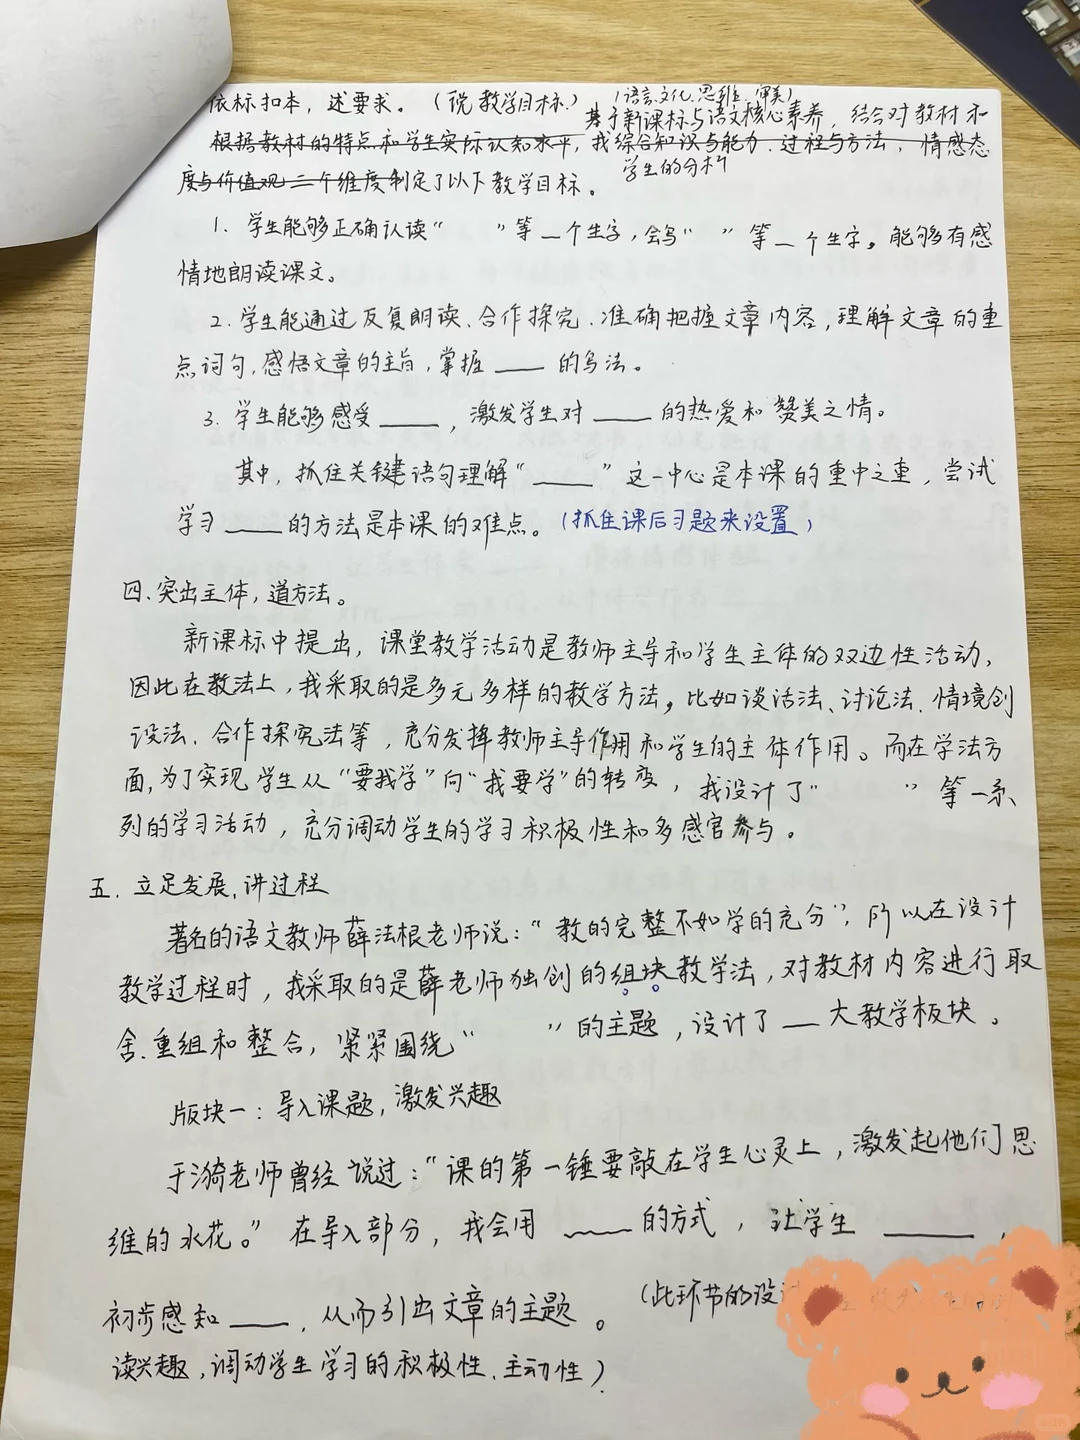 依标扣本，述要求。（说教学目标）（语言、文化、思维、审美）
基于新课标与语文核心素养，结合对教材和
根据教材的特点和学生实际认知水平，我综合知识与能力、过程与方法、情感态
学生的分析
度与价值观三个维度制定了以下教学目标。
1. 学生能够正确认读“ ”等_个生字，会写“ ”等_个生字。能够有感
情地朗读课文。
2. 学生能通过反复朗读、合作探究、准确把握文章内容，理解文章的重
点词句，感悟文章的主旨，掌握___的写法。
3. 学生能够感受____，激发学生对____的热爱和赞美之情。
其中，抓住关键语句理解“____”这一中心是本课的重中之重，尝试
学习____的方法是本课的难点。（抓住课后习题来设置）
四、突出主体，道方法。
新课标中提出，课堂教学活动是教师主导和学生主体的双边性活动，
因此在教法上，我采取的是多元多样的教学方法，比如谈话法、讨论法、情境创
设法、合作探究法等，充分发挥教师主导作用和学生的主体作用。而在学法方
面，为了实现学生从“要我学”向“我要学”的转变，我设计了“ ”等一系
列的学习活动，充分调动学生的学习积极性和多感官参与。
五、立足发展，讲过程
著名的语文教师薛法根老师说：“教的完整不如学的充分”，所以在设计
教学过程时，我采取的是薛老师独创的组块教学法，对教材内容进行取
舍、重组和整合，紧紧围绕“ ”的主题，设计了__大教学板块。
版块一：导入课题，激发兴趣
于漪老师曾经说过：“课的第一锤要敲在学生心灵上，激发起他们思
维的水花。”在导入部分，我会用____的方式，让学生_____，
初步感知____，从而引出文章的主题。（此环节的设
读兴趣，调动学生学习的积极性、主动性）